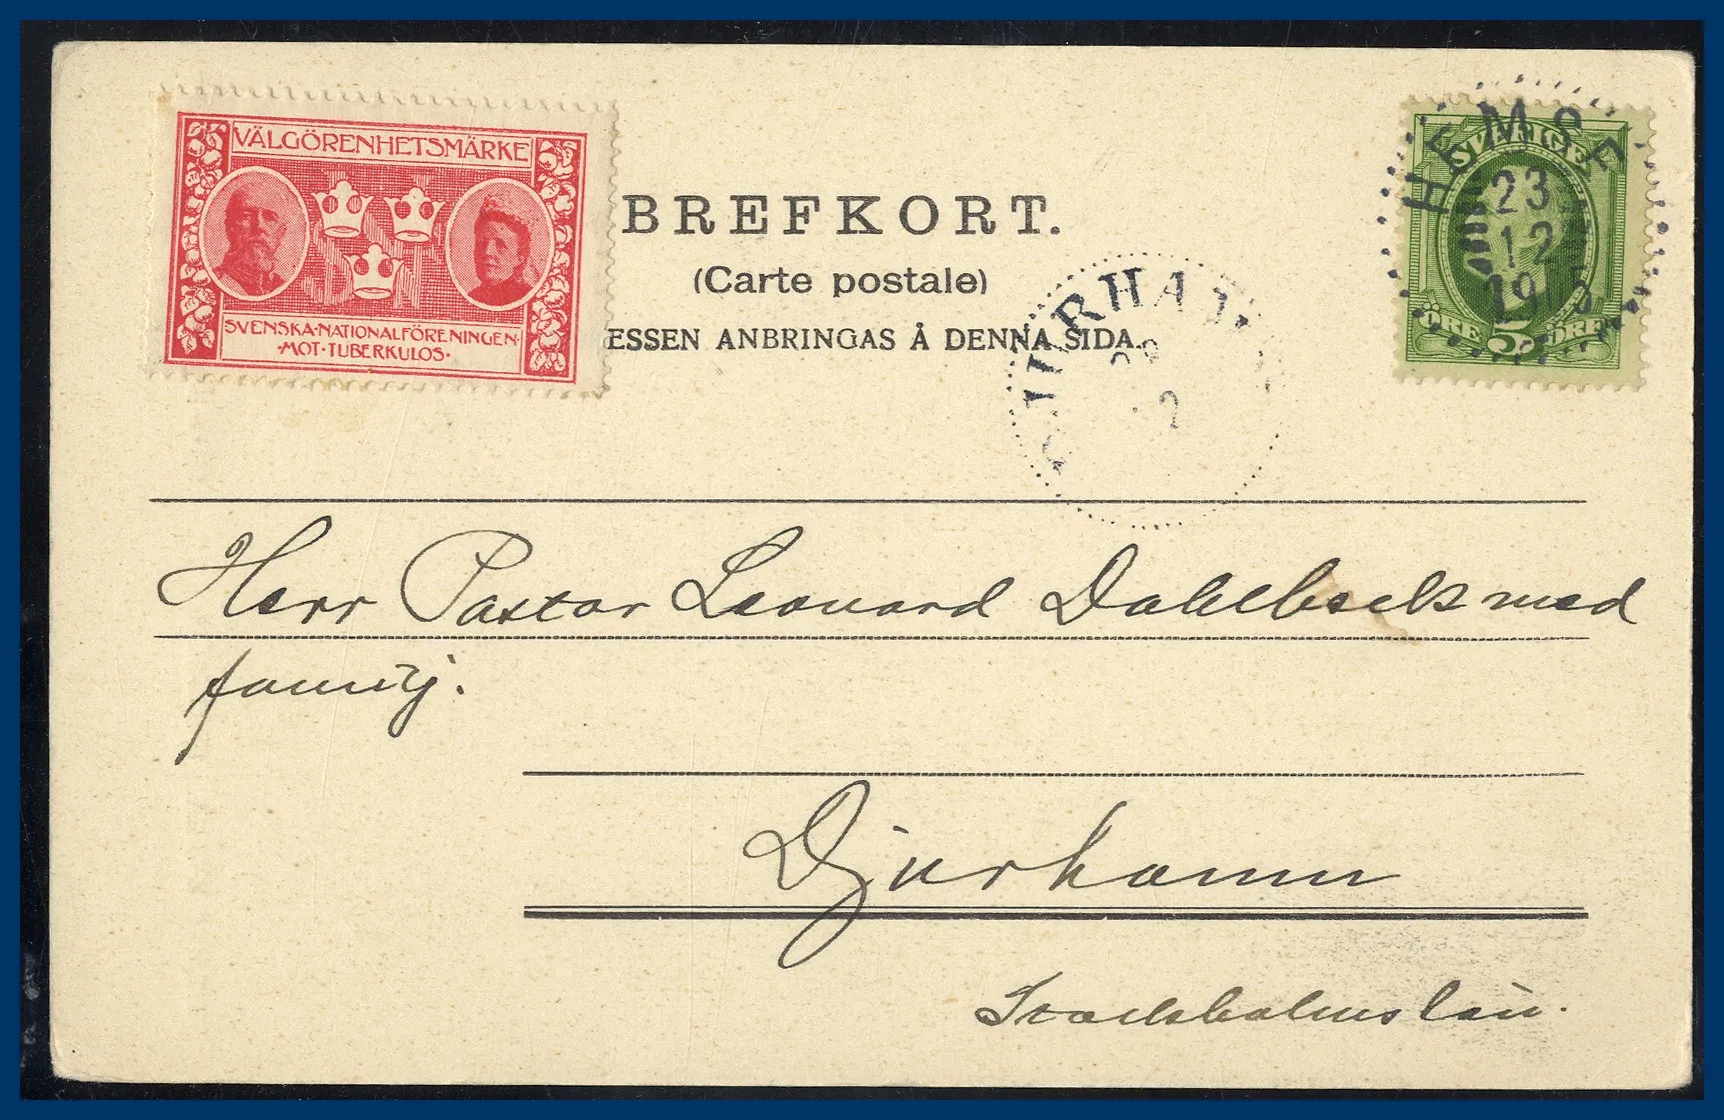 VÄLGÖRENHETSMÄRKE
SVENSKA·NATIONALFÖRENINGEN·
·MOT·TUBERKULOS·
BREFKORT.
(Carte postale)
ESSEN ANBRINGAS Å DENNA SIDA.
HEMSE
23
12
1905
SVERIGE
ÖRE 5 ÖRE
Herr Pastor Leonard Dahlbeck med
familj.
Djurhamn
Stockholms län.